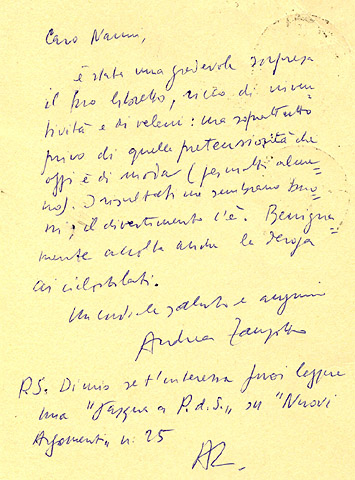 Caro Nanni,
è stata una gradevole sorpresa
il tuo libretto, ricco di inven-
tività e di veleni: ma soprattutto
privo di quella pretensiosità che
oggi è di moda (per molti alme-
no). I risultati mi sembrano buo-
ni; il divertimento c'è. Benigna-
mente accolta anche la deroga
ai ciclostilati.
Un cordiale saluto e auguri
Andrea Zanzotto
P.S. Di mio se t'interessa puoi leggere
una "Pasqua a P. d. S." su "Nuovi
Argomenti" n. 25
AZ.